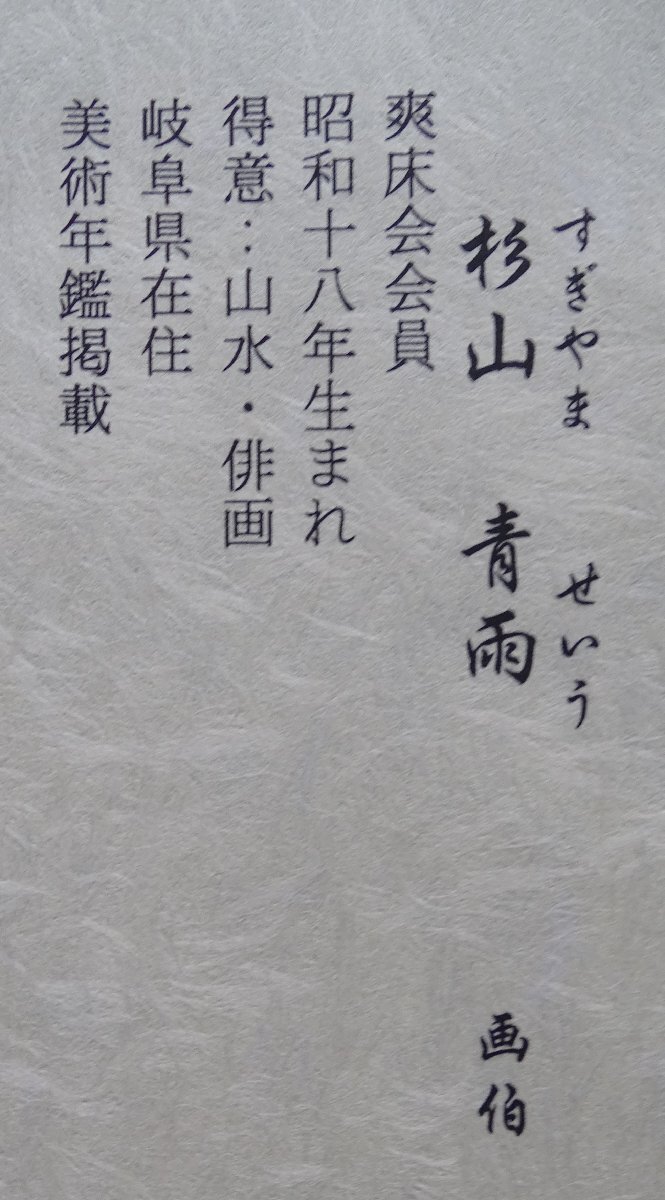 すぎやま せいう
杉山 青雨 画伯
爽床会会員
昭和十八年生まれ
得意：山水・俳画
岐阜県在住
美術年鑑掲載